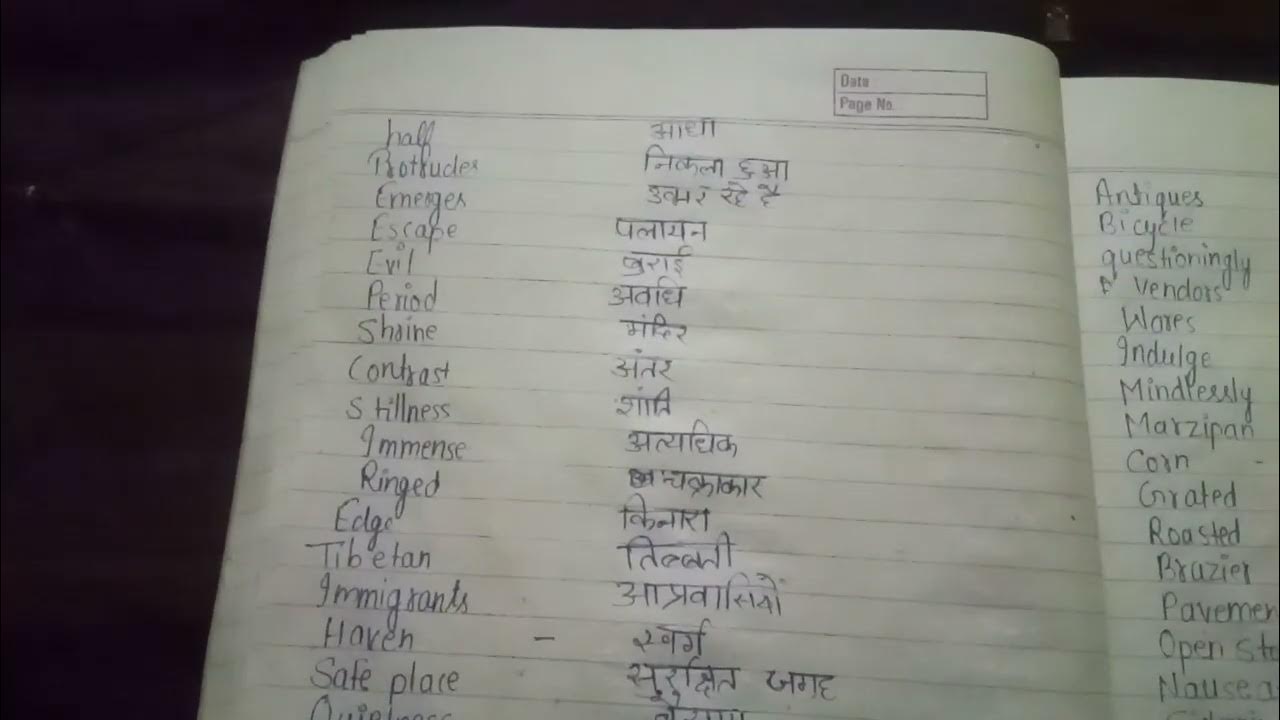 Date
Page No.
half आधा
Protrudes निकला हुआ
Emerges उभर रहे है
Escape पलायन
Evil बुराई
Period अवधि
Shrine मंदिर
Contrast अंतर
Stillness शांति
Immense अत्यधिक
Ringed चक्राकार
Edge किनारा
Tibetan तिब्बती
Immigrants आप्रवासियों
Haven – स्वर्ग
Safe place सुरक्षित जगह
Quietness
Antiques
Bicycle
questioningly
Vendors
Wares
Indulge
Mindlessly
Marzipan
Corn -
Grated
Roasted
Brazier
Pavemen
Open st
Nausea